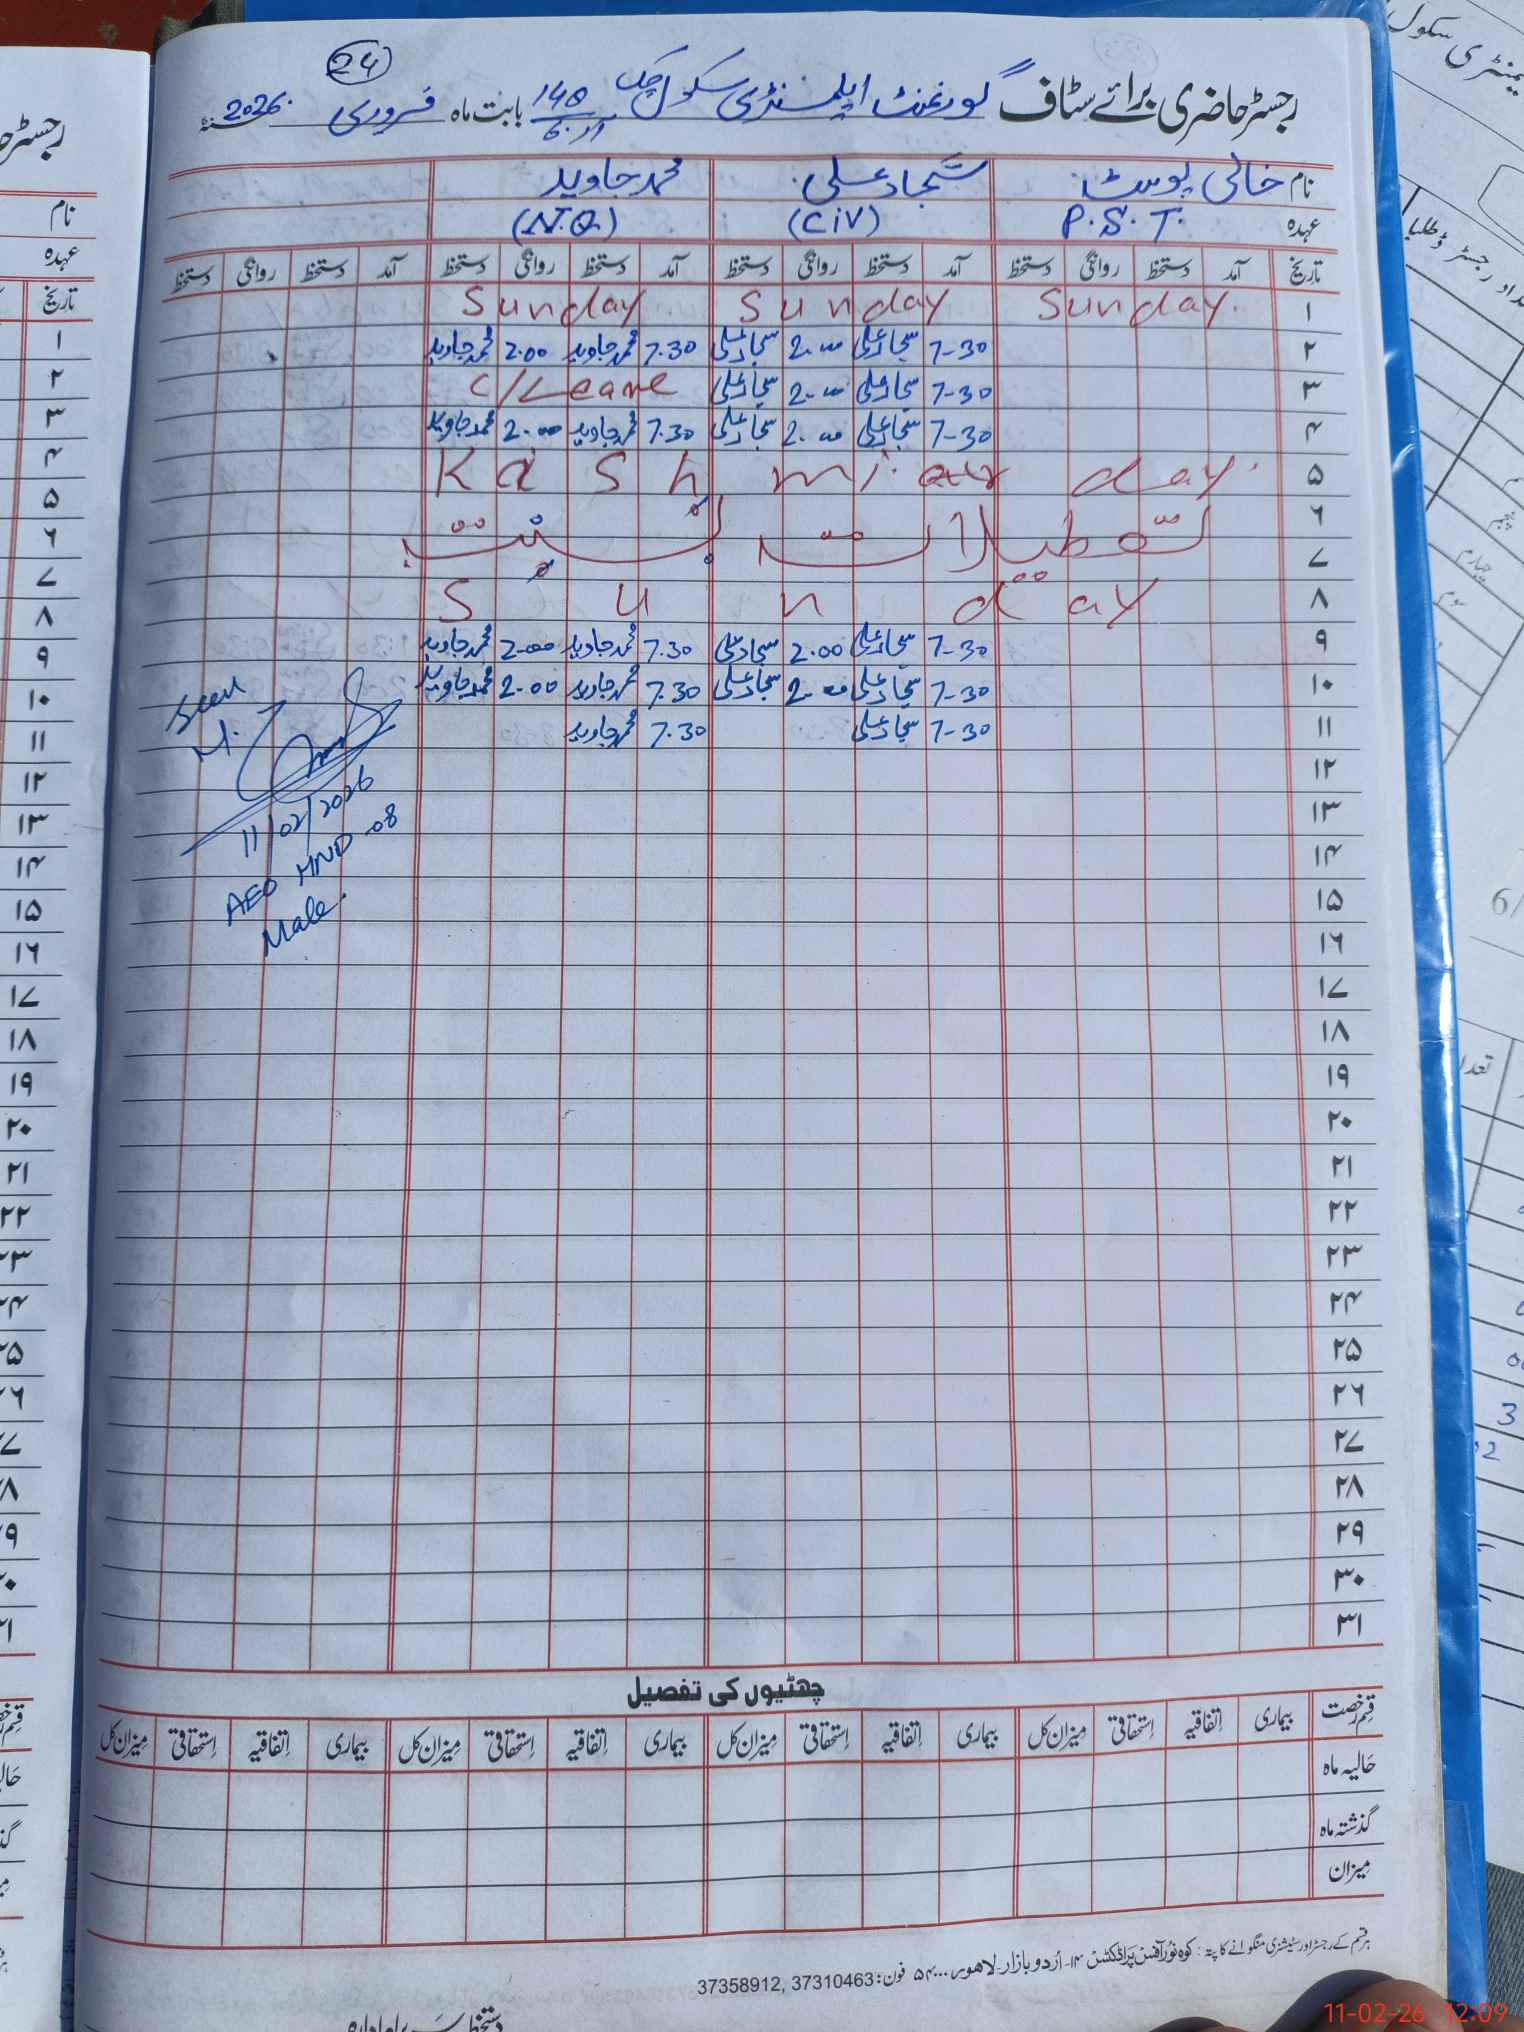 24
رجسٹر حاضری برائے سٹاف گورنمنٹ ایلیمنٹری سکول چک 140/6.آر بابت ماہ فروری 2026ء
نام خالی پوسٹ سجاد علی محمد جاوید
عہدہ P.S.T. (CIV) (N.Q)
تاریخ آمد دستخط روانگی دستخط آمد دستخط روانگی دستخط آمد دستخط روانگی دستخط آمد دستخط روانگی دستخط
۱ Sunday. Sunday Sunday
۲ 7-30 سجاد علی 2.00 سجاد علی 7.30 محمد جاوید 2.00 محمد جاوید
۳ 7-30 سجاد علی 2.00 سجاد علی C/Leave
۴ 7-30 سجاد علی 2.00 سجاد علی 7.30 محمد جاوید 2.00 محمد جاوید
۵ Kashmir day.
۶
۷ تعطیلات بسنت
۸ Sunday
۹ 7-30 سجاد علی 2.00 سجاد علی 7.30 محمد جاوید 2.00 محمد جاوید
۱۰ 7-30 سجاد علی 2.00 سجاد علی 7.30 محمد جاوید 2.00 محمد جاوید
۱۱ 7-30 سجاد علی 7.30 محمد جاوید
۱۲
۱۳
۱۴
۱۵
۱۶
۱۷
۱۸
۱۹
۲۰
۲۱
۲۲
۲۳
۲۴
۲۵
۲۶
۲۷
۲۸
۲۹
۳۰
۳۱
Seen
11/02/2026
AEO HND-08
Male.
چھٹیوں کی تفصیل
قسم رخصت بیماری اتفاقیہ استحقاقی میزان کل بیماری اتفاقیہ استحقاقی میزان کل بیماری اتفاقیہ استحقاقی میزان کل بیماری اتفاقیہ استحقاقی میزان کل
حالیہ ماہ
گذشتہ ماہ
میزان
ہر قسم کے رجسٹر اور سٹیشنری منگوانے کا پتہ: کوہ نور آفس پراڈکٹس ۱۴- اردو بازار- لاہور ۵۴۰۰۰ فون: 37310463 ,37358912
11-02-26 12:09